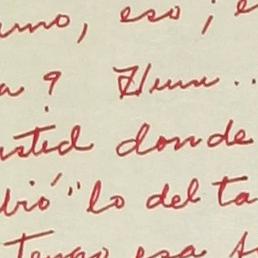 umo, eso ; e
a ? Hum ..
usted donde
bió" lo del ta
Tengo esa s